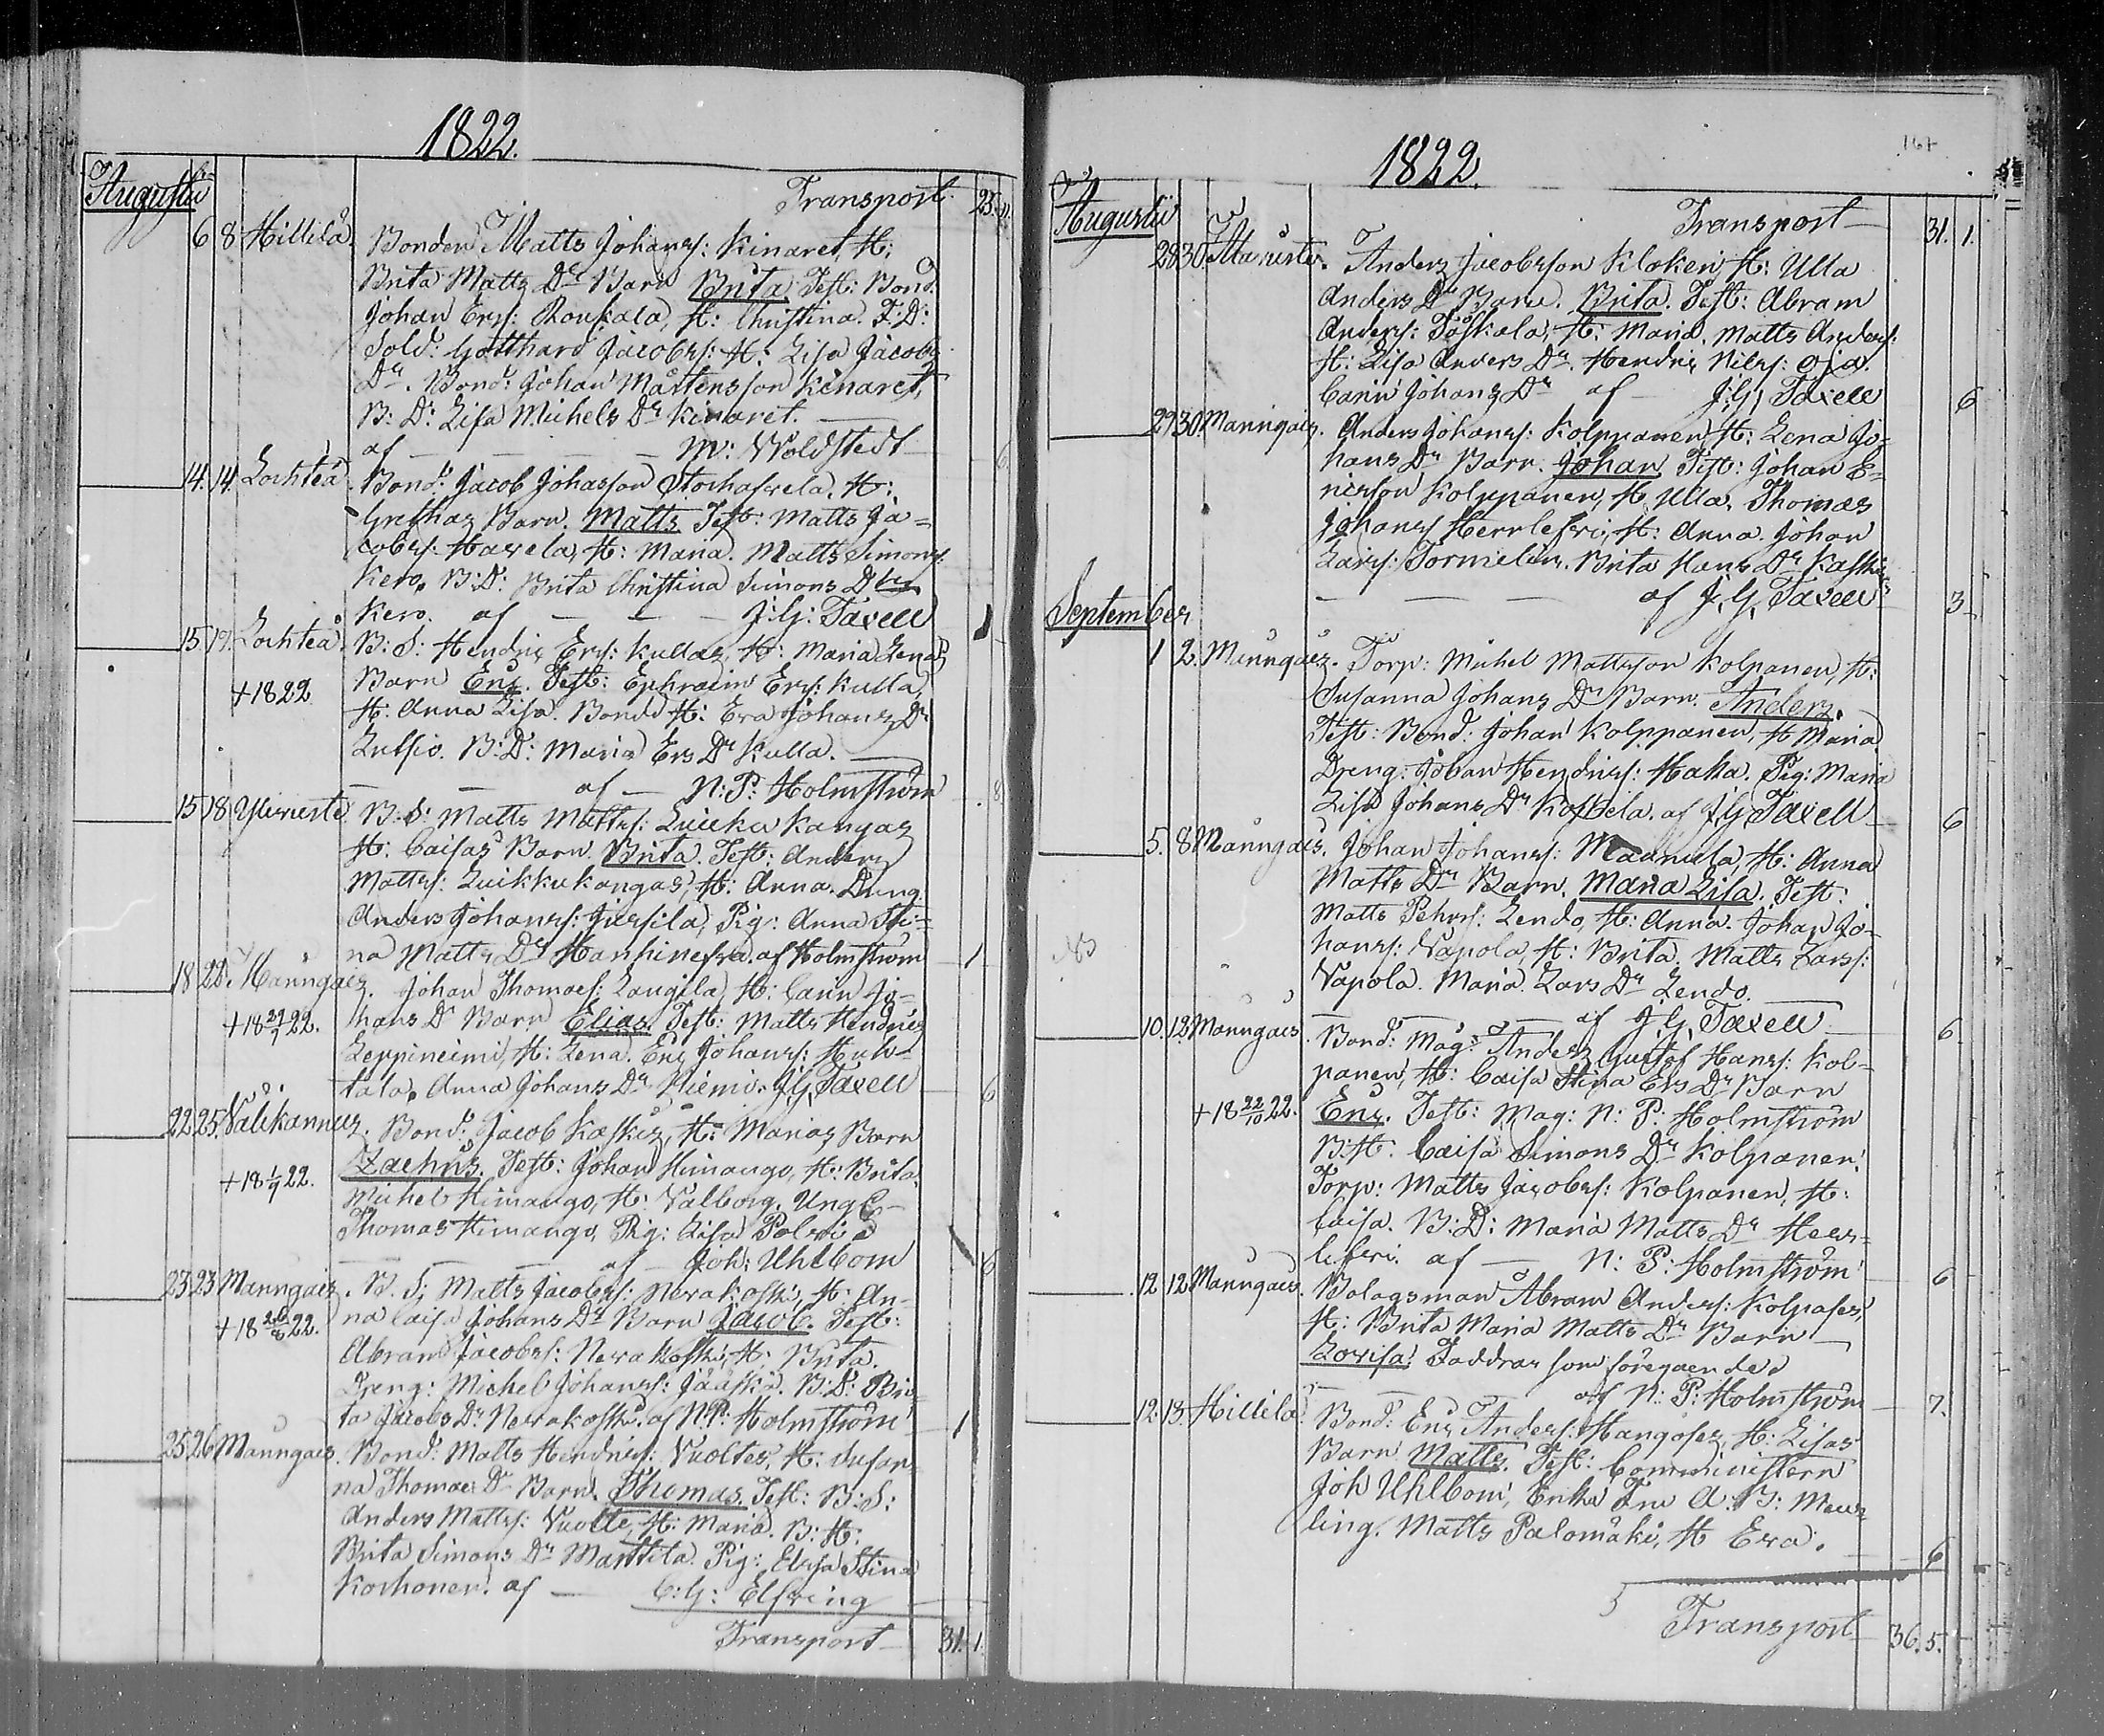 1822.
Augusti
Transport 25.11.
6 8 Hillilä. Bonden Matts Johanss: Kinaret, H:
Brita Matts Dr Barn Brita Test: Bond.
Johan Erss: Rouskala, H: Christina. F:D:
Sold: Gotthard Jacobss: H: Lisa Jacobs
Dr. Bond: Johan Mårtensson Kinaret,
B: D: Lisa Michels Dr Kinaret.
af — M: Woldstedt 6.
14. 14. Lochteå. Bond: Jacob Johansson H:
Grethas Barn. Matts Test: Matts Ja=
cobs: Haxela, H: Maria. Matts Simons:
Kero. B:D: Brita Christina Simons Dr
Kero. af — J:G: Taxell 1
15. 19. Lochteå. B: S: Hendric Ers: Kullas, H: Maria Lenas
Barn Eric. Test: Ephraim Ers: Kulla,
+1822 H: Anna Lisa. Bond H: Eva Johans Dr
B:D: Maria Ers Dr Kulla.
af — N:P: Holmström 8
15 18 Yliviste B:S: Matts Matts: Luicku Kangas
H: Caisas Barn. Brita. Test: Anders
Mattss: Luikkukangas, H: Anna. Dreng
Anders Johanss: Pig: Anna Sti=
na Matts Dr af Holmström 1
18. 22. Manngais. Johan Thomass: Laugila, H: Carin Jo=
+18 22. hans Dr Barn Elias. Test: Matts Hendrics
Leppineimi, H: Lena. Eric Johanss: Huh=
tala, Anna Johans Dr Niemi. J:G: Taxell 6
22. 25. Välikannus. Bond: Jacob Kaskis, H: Marias Barn
+18 1/9 22. Zachris. Test: Johan Himango, H: Brita,
Michel Himango, H: Valborg. Ung C—
Thomas Himango, Pig: Lisa Polvi
af — Joh: Uhlbom 6
23. 23 Manngais. B. S: Matts Jacobss: Nerakoski, H: An=
+18 26/8 22. na Caisa Johans Dr Barn Jacob. Test:
Abram Jacobss: Nerakoski, H: Brita.
Dreng: Michel Johanss: Jääskä. B:D: Bri=
ta Jacobs Dr Nerakoski. af N:P: Holmström 1
25. 26 Manngais. Bond: Matts Hendricss: Vuoltes, H: Susan=
na Thomas Dr Barn. Thomas. Test: B:S:
Anders Mattss: Vuolte, H: Maria. B:H:
Brita Simons Dr Marttila. Pig: Elisa Stina
Korhonen. af — C:G: Elfving
Transport 31. 1.
1822.
167
Augusti
Transport 31. 1.
28 30. Anders Jacobsson Kloken, H: Ulla
Anders Dr Barn. Brita. Test: Abram
Anderss: Töskala, H: Maria. Matts Anderss:
H: Lisa Anders Dr. Hendric Nilss: Oja.
Carin Johans Dr af — J:G: Taxell 6
29 30. Manngais. Anders Johanss: Kolppanen, H: Lena Jo=
hans Dr Barn. Johan Test: Johan E=
ricsson Kolppanen, H. Ulla. Thomas
Johanss Herrlefvi, H: Anna. Johan
Larss: Tormelin. Brita Hans Dr
af J:G: Taxell 3
September
1 2. Manngais. Torp: Michel Mattsson Kolpanen, H:
Susanna Johans Dr Barn. Anders.
Test: Bond: Johan Kolppanen, H Maria.
Dreng: Johan Hendricss: Haka. Pig: Maria
Lisa Johans Dr Koskela. af J:G: Taxell 6
5. 8 Manngais. Johan Johanss: H: Anna
Matts Dr Barn. Maria Lisa. Test:
Matts Pehrss: Lendo, H: Anna. Johan Jo=
hanss: Vapola, H: Brita. Matts Larss:
Vapola. Maria Lars Dr Lendo.
af J:G: Taxell 6
10. 12. Manngais. Bond: Mag: Anders Gustaf Hanss: Kol=
panen, H: Caisa Stina Ers Dr Barn
+18 22/10 22. Eric. Test: Mag: N: P: Holmström
B:H: Caisa Simons Dr Kolpanen.
Torp: Matts Jacobss: Kolpanen, H:
Caisa. B:D: Maria Matts Dr Herr=
lefvi. af — N: P: Holmström 6
12. 12. Manngais. Bolagsman Abram Anderss: Kolpases,
H: Brita Maria Matts Dr Barn
Lovisa. Faddrar som föregaende
af N: P: Holmström 7.
12. 13. Hillilä. Bond: Eric Anderss: Hangases, H: Lisas
Barn Matts. Test: Comministern
Joh Uhlbom, Enka Fru A: B: Meur=
ling. Matts Palomäki, H Eva. 6
5
Transport 36. 5.